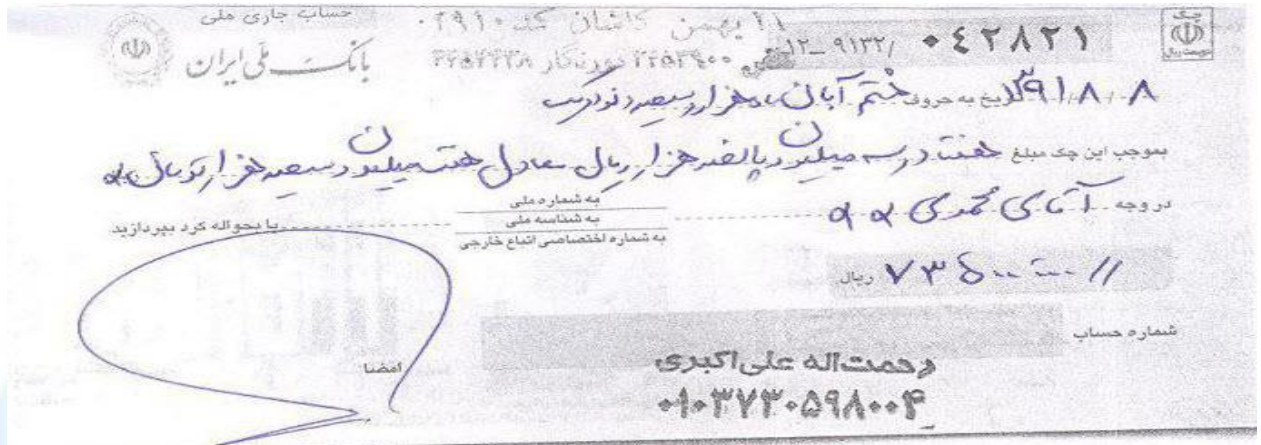 حساب جاری ملی
بانک ملی ایران
۲۲ بهمن کاشان کد ۲۹۱۰
۱۲-۹۱۳۲/ ۰۴۲۸۲۱
تلفن ۴۴۵۳۹۰۰ دورنگار
چک
۱۳۹۱/۸/۸ تاریخ به حروف هشتم آبان ماه هزار و سیصد و نود و یک
بموجب این چک مبلغ هفتاد و سه میلیون و پانصد هزار ریال معادل هفت میلیون و سیصد هزار تومان
در وجه آقای محمدی
به شماره ملی
به شناسه ملی
به شماره اختصاصی اتباع خارجی
یا بحواله کرد بپردازید
۷۳۵۰۰۰۰۰ // ریال
شماره حساب
رحمت اله علی اکبری
۰۱۰۳۷۳۰۵۹۸۰۰۴
امضا